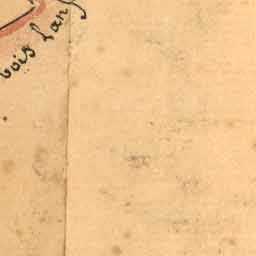 bois Lang